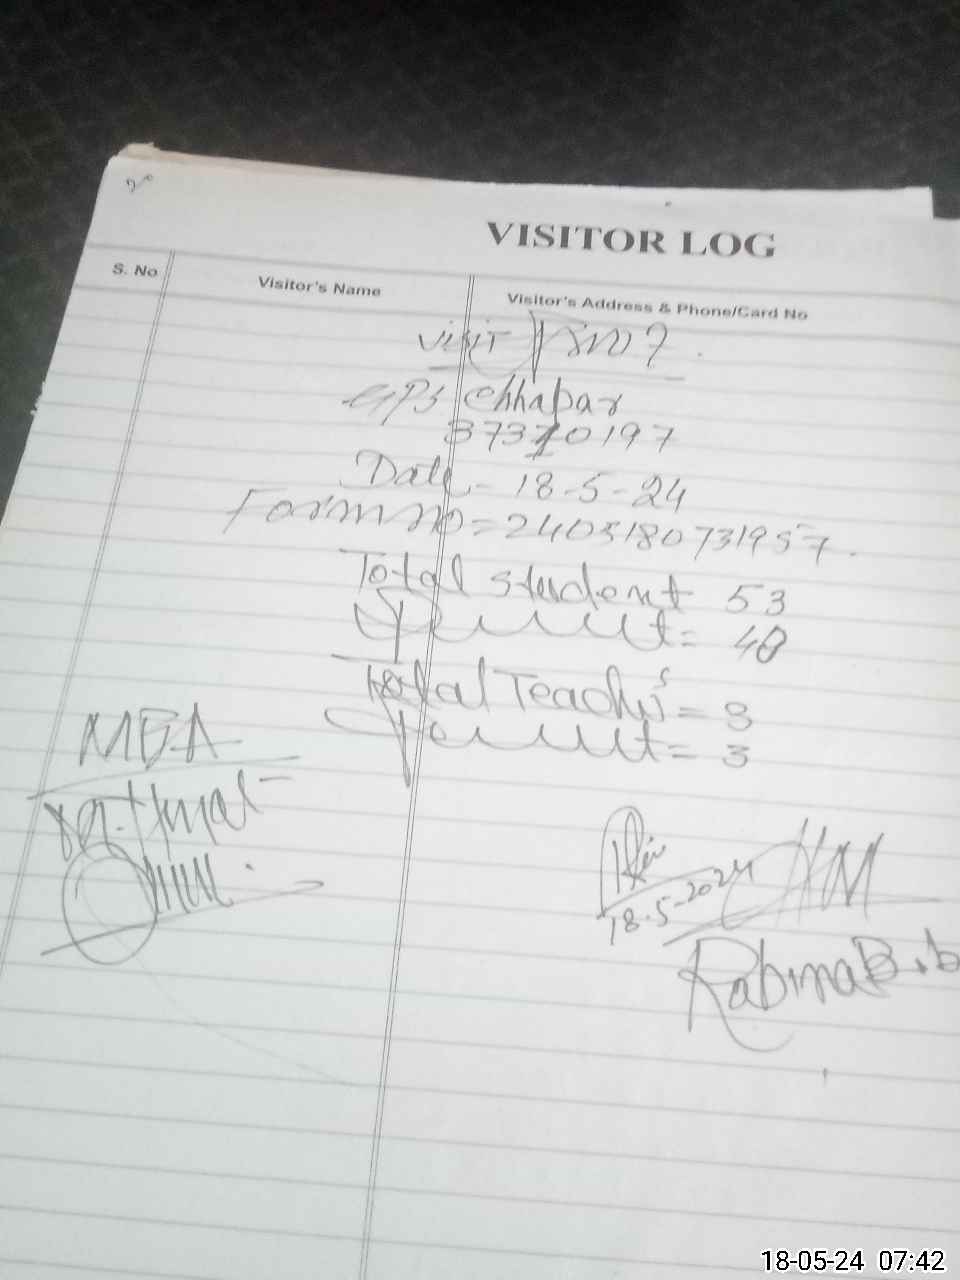 VISITOR LOG
S. No
Visitor's Name
Visitor's Address & Phone/Card No
visit no 7
GPS Chhapar
37310197
Date - 18-5-24
Form no = 2405180731957
Total student 53
Present = 48
Total Teachers = 3
Present = 3
MEA
18-5-2024
HM
Rabina Bib
18-05-24 07:42